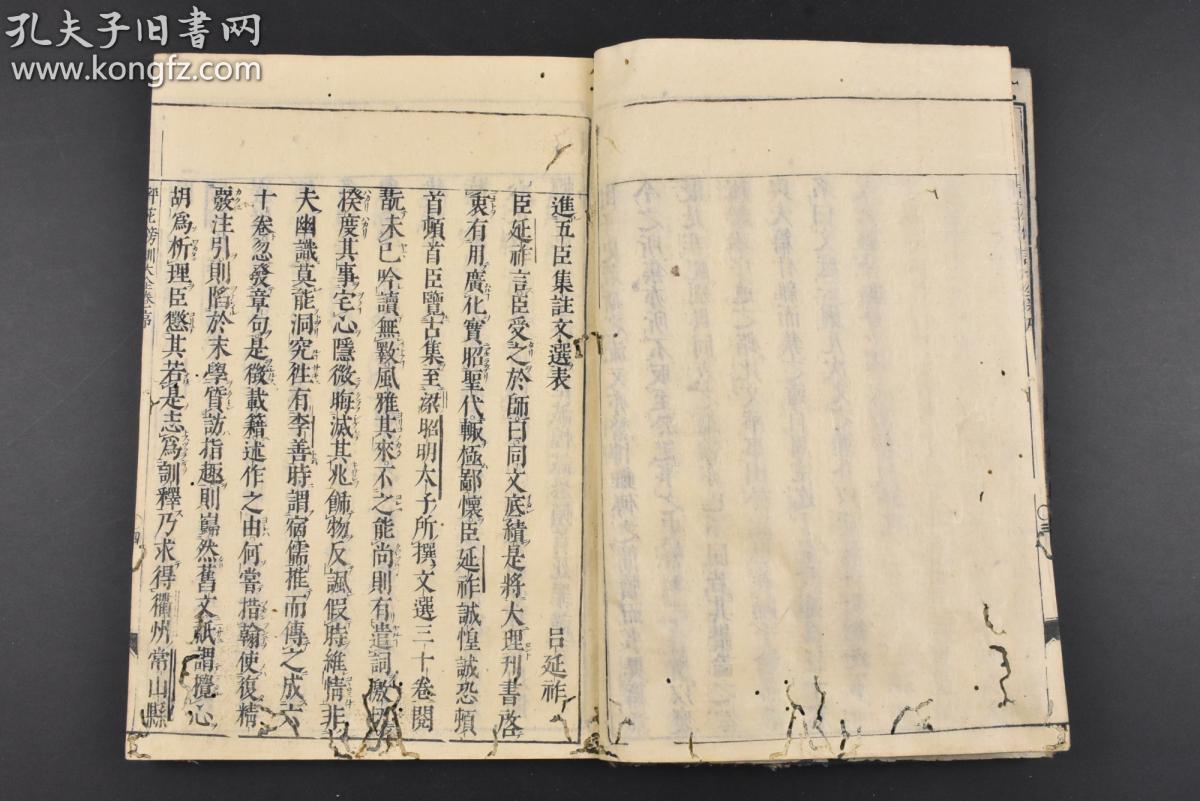 孔夫子旧书网
www.kongfz.com
進五臣集註文選表
呂延祚
臣延祚言臣受之於師曰同文底績是將大理刊書啓
衷有用廣化實昭聖代輙極鄙懷臣延祚誠惶誠恐頓
首頓首臣覽古集至梁昭明太子所撰文選三十卷閱
翫未已吟讀無斁風雅其來不之能尚則有遣詞激切
揆度其事宅心隱微晦滅其兆飾物反諷假時維情非
夫幽識莫能洞究徃有李善時謂宿儒推而傳之成六
十卷忽發章句是徵載籍述作之由何嘗措翰使復精
覈注引則陷於末學質訪指趣則巋然舊文祇謂攪心
胡爲析理臣懲其若是志爲訓釋乃求得衢州常山縣
評苑旁訓大全卷一序
四